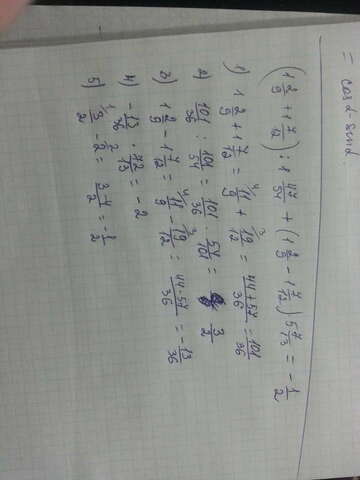 = cosα·sinα.
(1 2/9 + 1 7/12) : 1 47/54 + (1 2/9 - 1 7/12) 5 7/13 = - 1/2
1) 1 2/9 + 1 7/12 = 11/9 + 19/12 = 44+57/36 = 101/36
2) 101/36 : 101/54 = 101/36 · 54/101 = 3/2
3) 1 2/9 - 1 7/12 = 11/9 - 19/12 = 44-57/36 = - 13/36
4) - 13/36 · 72/13 = -2
5) 3/2 - 2 = 3-4/2 = - 1/2